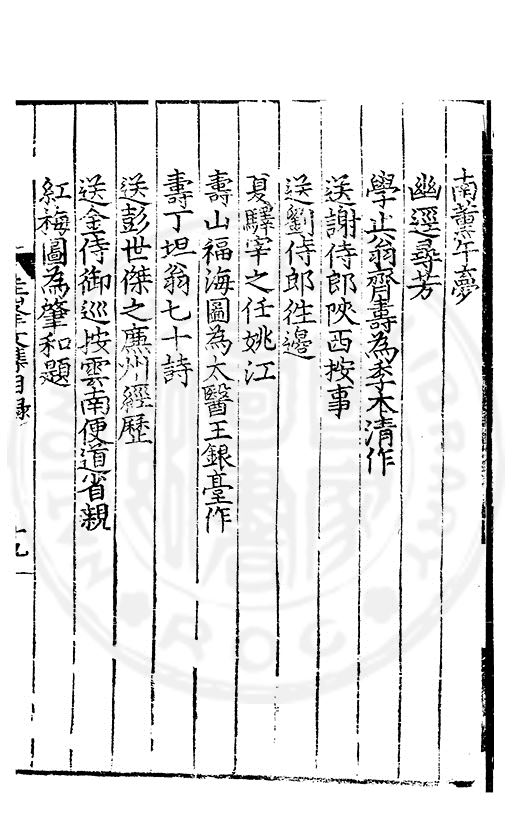 南薰午夢
幽逕尋芳
學共翁齊壽為李木清作
送謝侍郎陝西按事
送劉侍郎徃邊
夏驛宰之任姚江
壽山福海圖為太醫王銀臺作
壽丁坦翁七十詩
送彭世傑之廉州經歷
送金侍御巡按雲南便道省親
紅梅圖為肇和題
文集目錄
十九